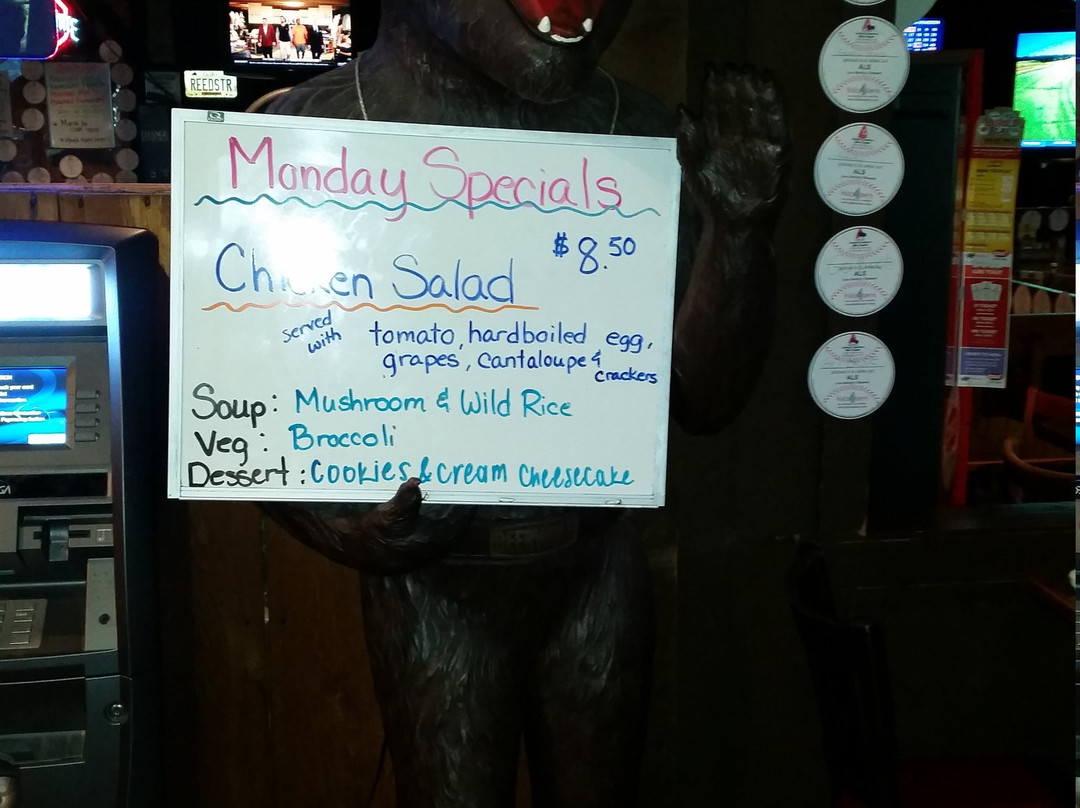 REEDSTR
Monday Specials
$8.50
Chicken Salad
served with
tomato, hardboiled egg,
grapes, cantaloupe &
crackers
Soup: Mushroom & Wild Rice
Veg: Broccoli
Dessert: Cookies & Cream Cheesecake
ALS
ALS
ALS
ALS